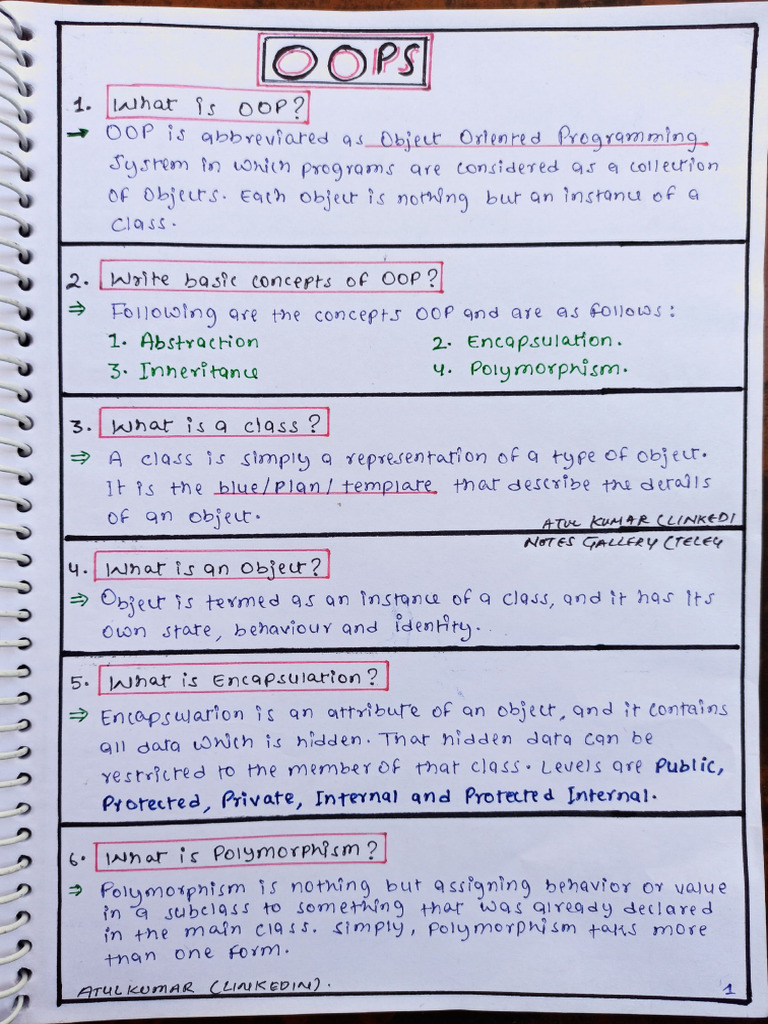 OOPS
1. What is OOP?
→ OOP is abbreviated as Object Oriented Programming
System in which programs are considered as a collection
of Objects. Each object is nothing but an instance of a
class.
2. Write basic concepts of OOP?
⇒ Following are the concepts OOP and are as follows:
1. Abstraction 2. Encapsulation.
3. Inheritance 4. Polymorphism.
3. What is a class?
⇒ A class is simply a representation of a type of object.
It is the blue/plan/template that describe the details
of an object.
ATUL KUMAR (LINKEDI
NOTES GALLERY (TELEG
4. What is an Object?
⇒ Object is termed as an instance of a class, and it has its
own state, behaviour and identity.
5. What is Encapsulation?
⇒ Encapsulation is an attribute of an object, and it contains
all data which is hidden. That hidden data can be
restricted to the member of that class. Levels are Public,
Protected, Private, Internal and Protected Internal.
6. What is Polymorphism?
⇒ Polymorphism is nothing but assigning behavior or value
in a subclass to something that was already declared
in the main class. Simply, polymorphism takes more
than one form.
ATUL KUMAR (LINKEDIN).
1